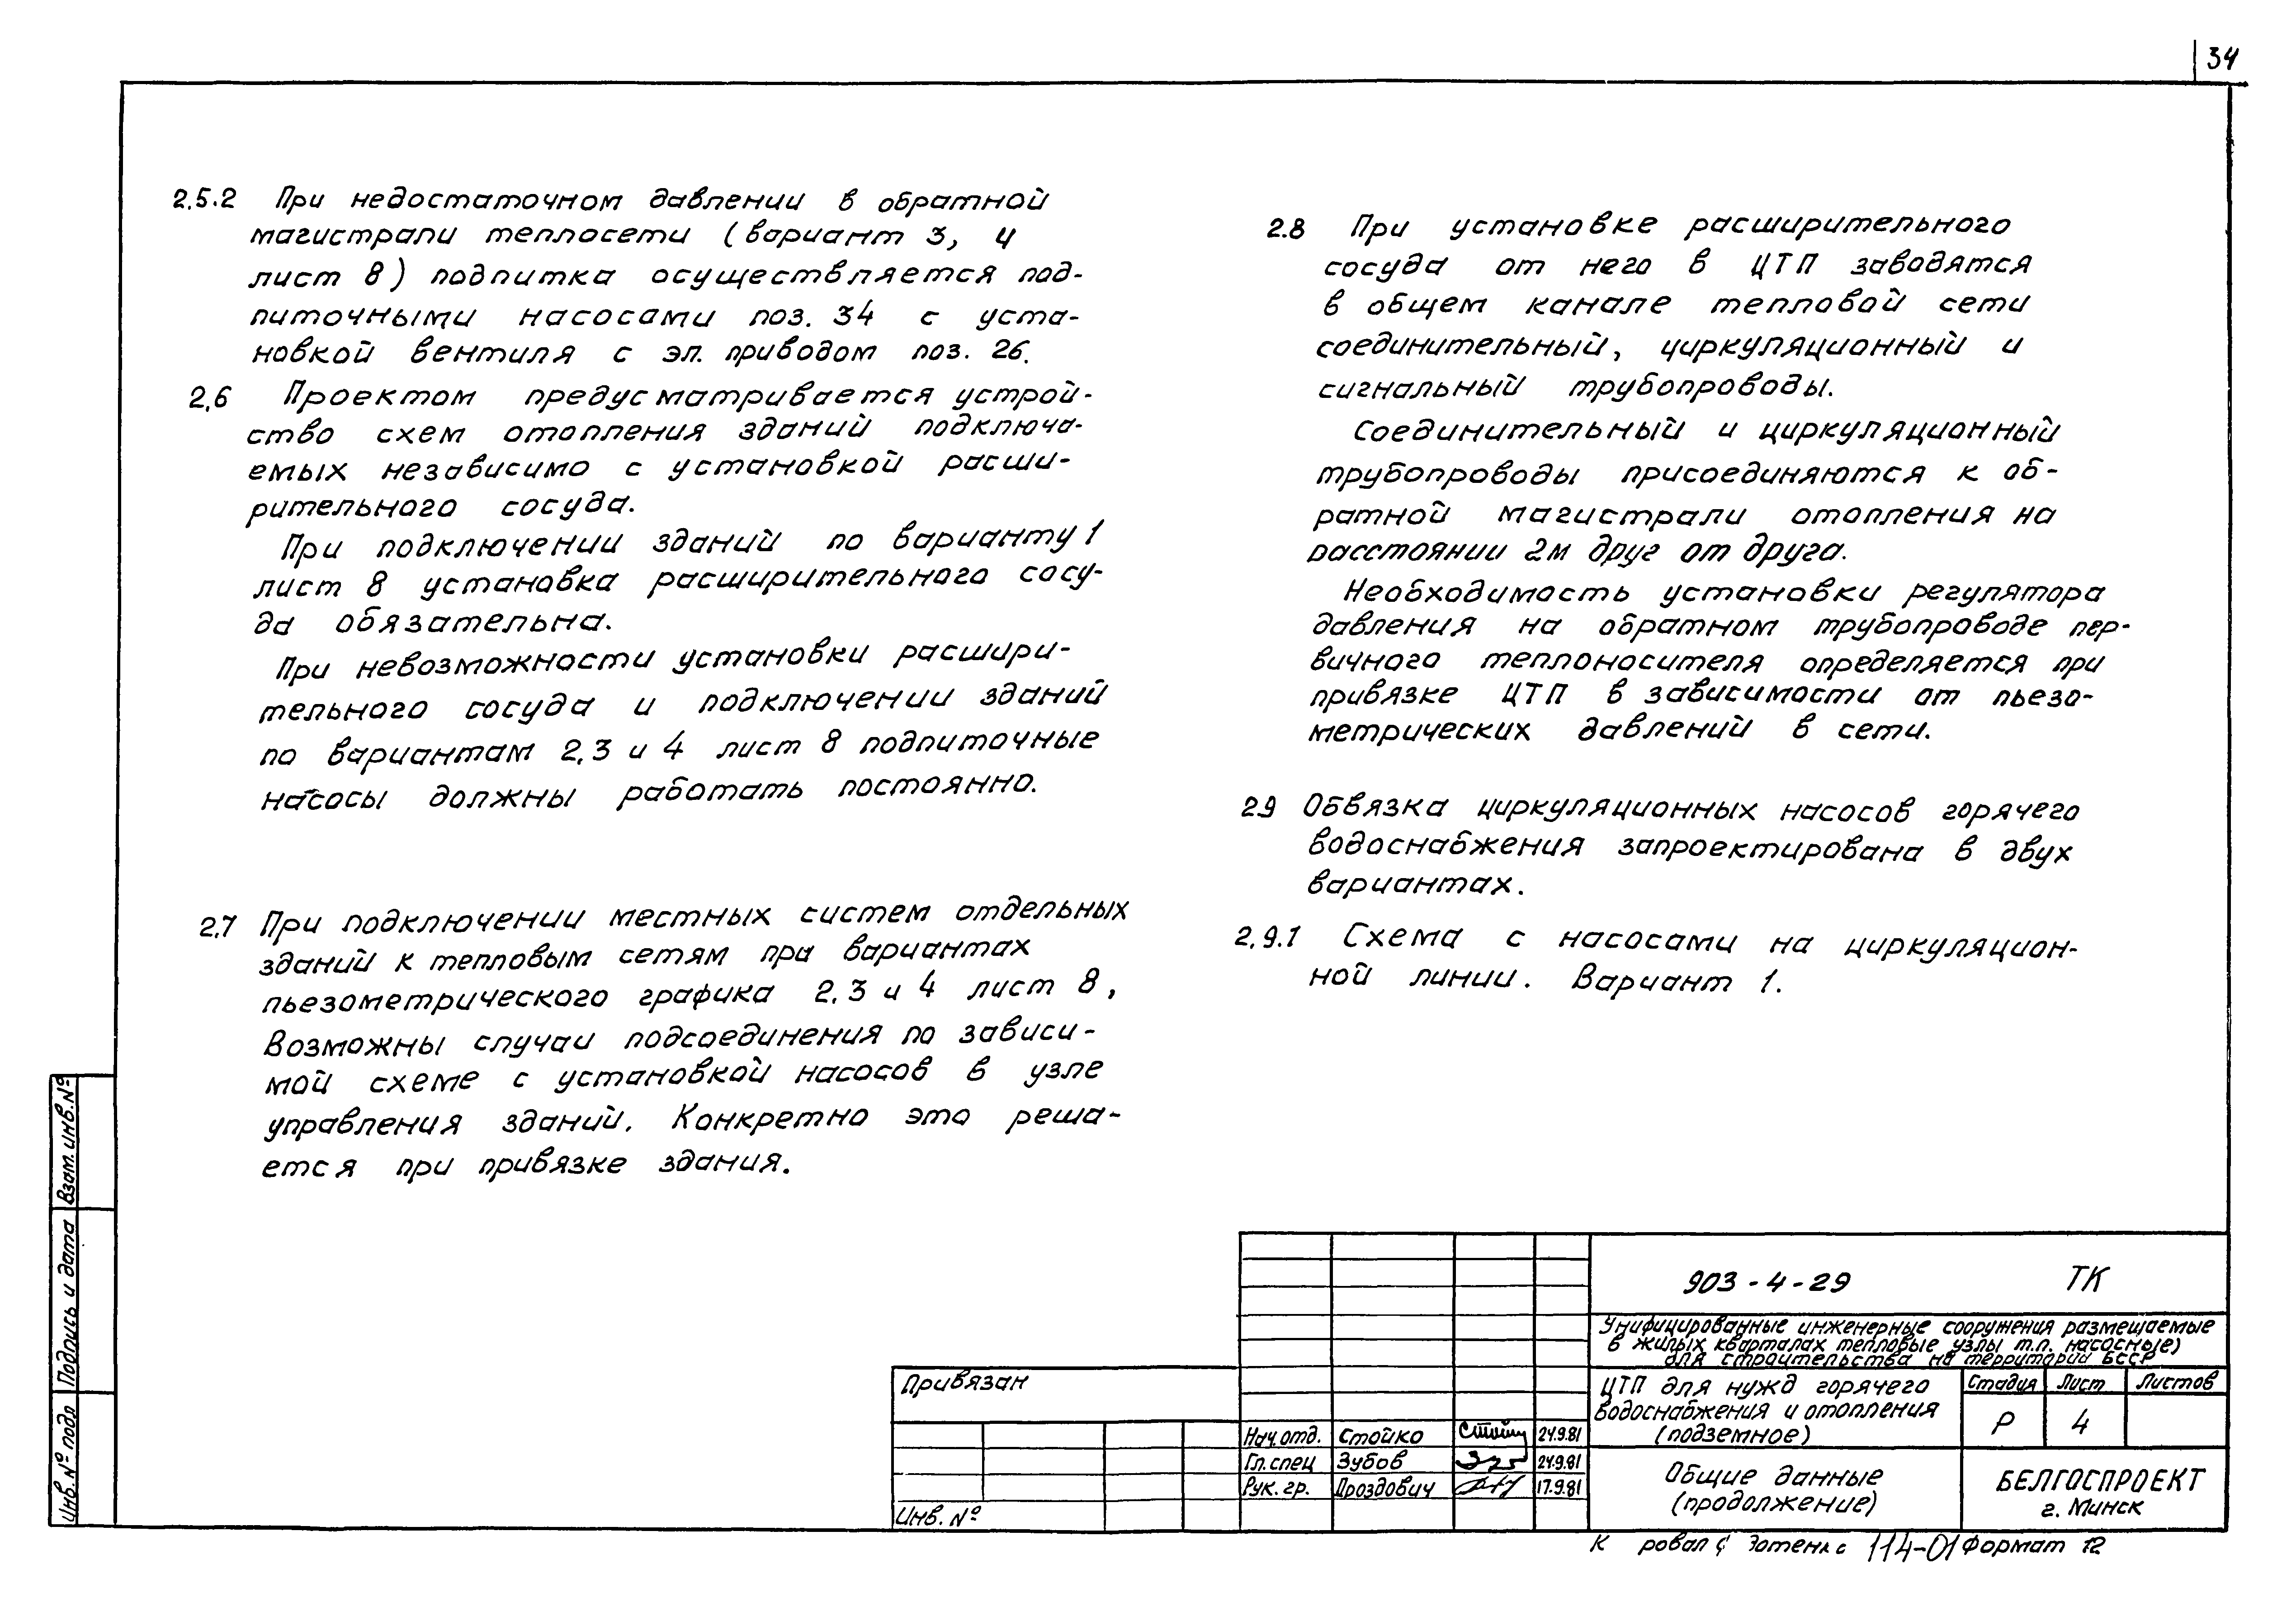 34
2.5.2 При недостаточном давлении в обратной
магистрали теплосети (вариант 3, 4
лист 8) подпитка осуществляется под-
питочными насосами поз. 34 с уста-
новкой вентиля с эл. приводом поз. 26.
2.6 Проектом предусматривается устрой-
ство схем отопления зданий подключа-
емых независимо с установкой расши-
рительного сосуда.
При подключении зданий по варианту 1
лист 8 установка расширительного сосу-
да обязательна.
При невозможности установки расшири-
тельного сосуда и подключении зданий
по вариантам 2,3 и 4 лист 8 подпиточные
насосы должны работать постоянно.
2.7 При подключении местных систем отдельных
зданий к тепловым сетям при вариантах
пьезометрического графика 2.3 и 4 лист 8,
Возможны случаи подсоединения по зависи-
мой схеме с установкой насосов в узле
управления зданий. Конкретно это реша-
ется при привязке здания.
2.8 При установке расширительного
сосуда от него в ЦТП заводятся
в общем канале тепловой сети
соединительный, циркуляционный и
сигнальный трубопроводы.
Соединительный и циркуляционный
трубопроводы присоединяются к об-
ратной магистрали отопления на
расстоянии 2м друг от друга.
Необходимость установки регулятора
давления на обратном трубопроводе пер-
вичного теплоносителя определяется при
привязке ЦТП в зависимости от пьезо-
метрических давлений в сети.
2.9 Обвязка циркуляционных насосов горячего
водоснабжения запроектирована в двух
вариантах.
2.9.1 Схема с насосами на циркуляцион-
ной линии. Вариант 1.
Взам. инв. №
Подпись и дата
Инв. № подл
Привязан
Инв. №
Нач. отд. Стойко 24.9.81
Гл. спец Зубов 24.9.81
Рук. гр. Дроздович 17.9.81
903-4-29 ТК
Унифицированные инженерные сооружения размещаемые
в жилых кварталах тепловые узлы т.п. насосные)
для строительства на территории БССР
ЦТП для нужд горячего
водоснабжения и отопления
(подземное)
Стадия Лист Листов
Р 4
Общие данные
(продолжение)
БЕЛГОСПРОЕКТ
г. Минск
114-01 Формат 12